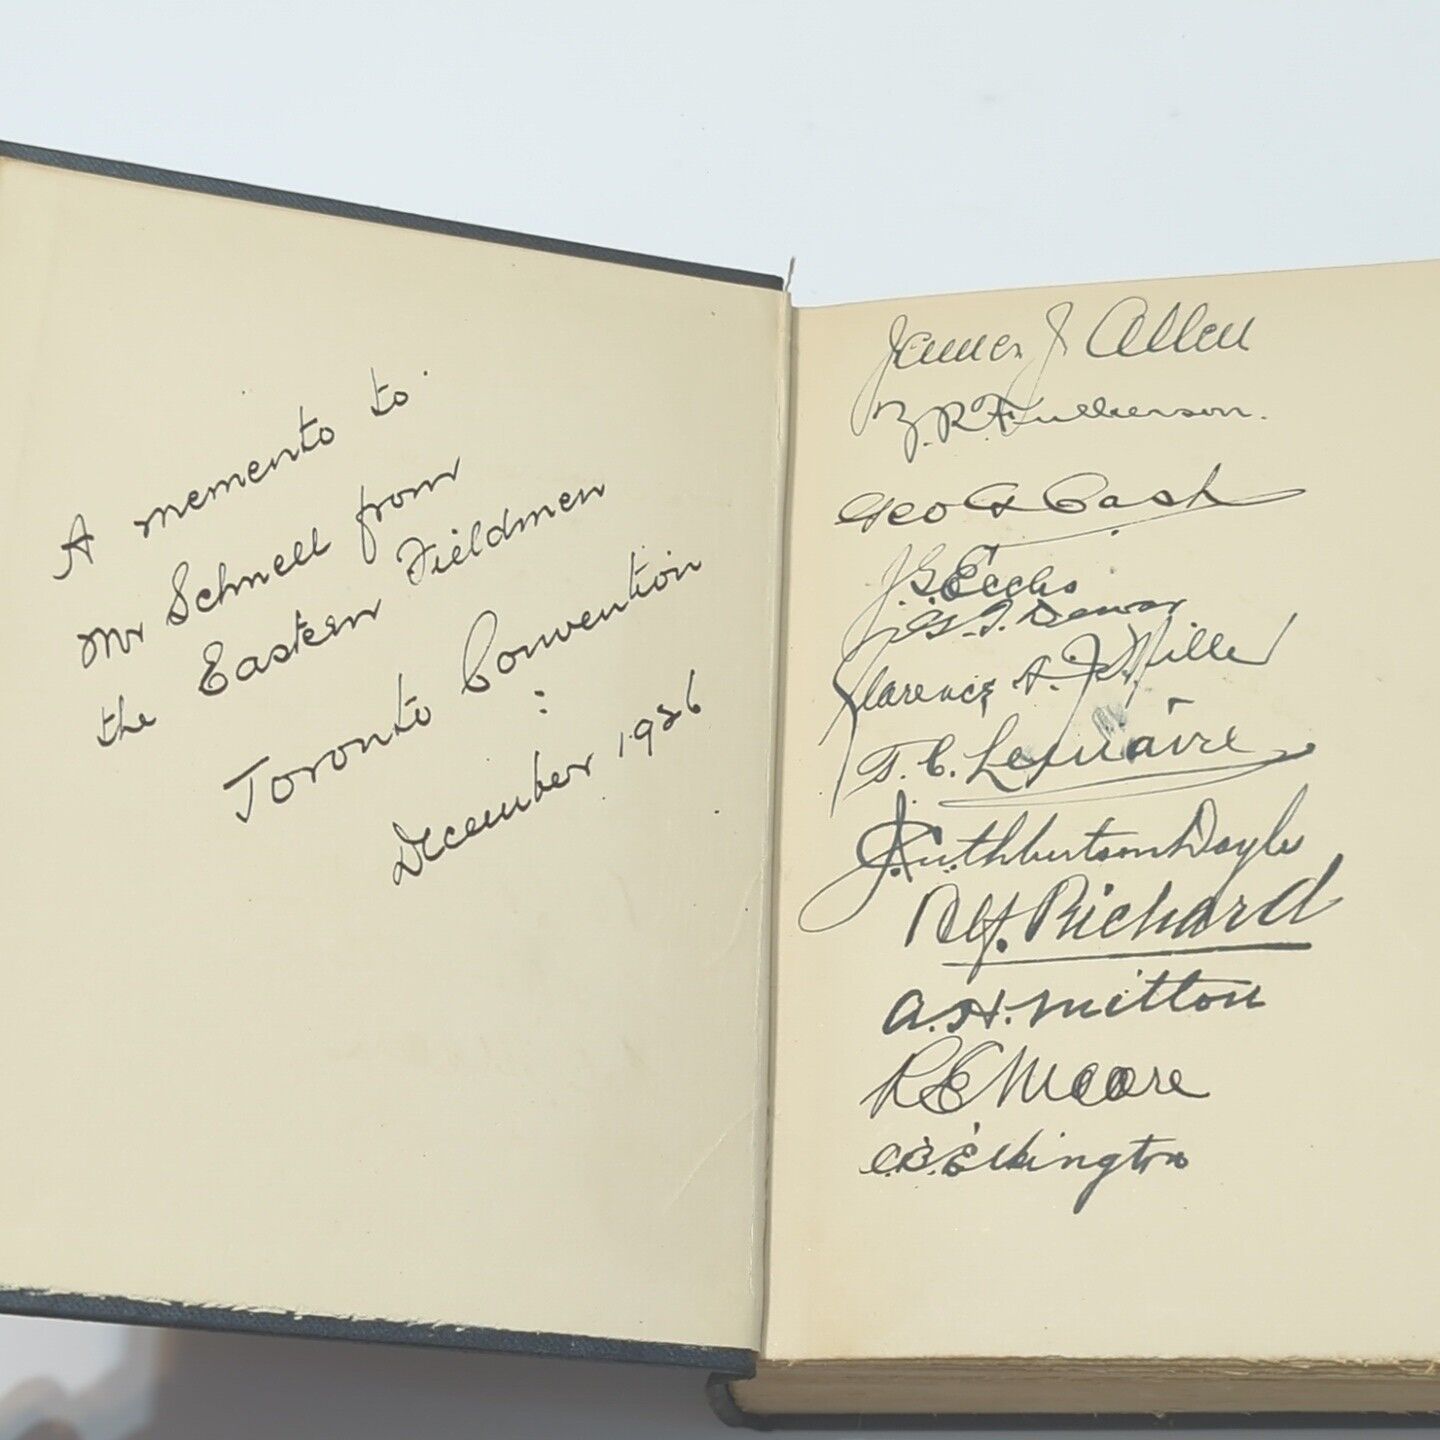 A memento to
Mr Schnell from
the Eastern Fieldmen
Toronto Convention
:
December 1926
James J Allen
Z. R. Fulkerson.
Geo G Cash
J. G. Eccles
G. T. Dewar
Clarence A. J. Miller
T. C. Lemaire
J. Cuthbertson Doyle
Alf. Richard
A. H. Mitton
R E Moore
C. B. Elkington